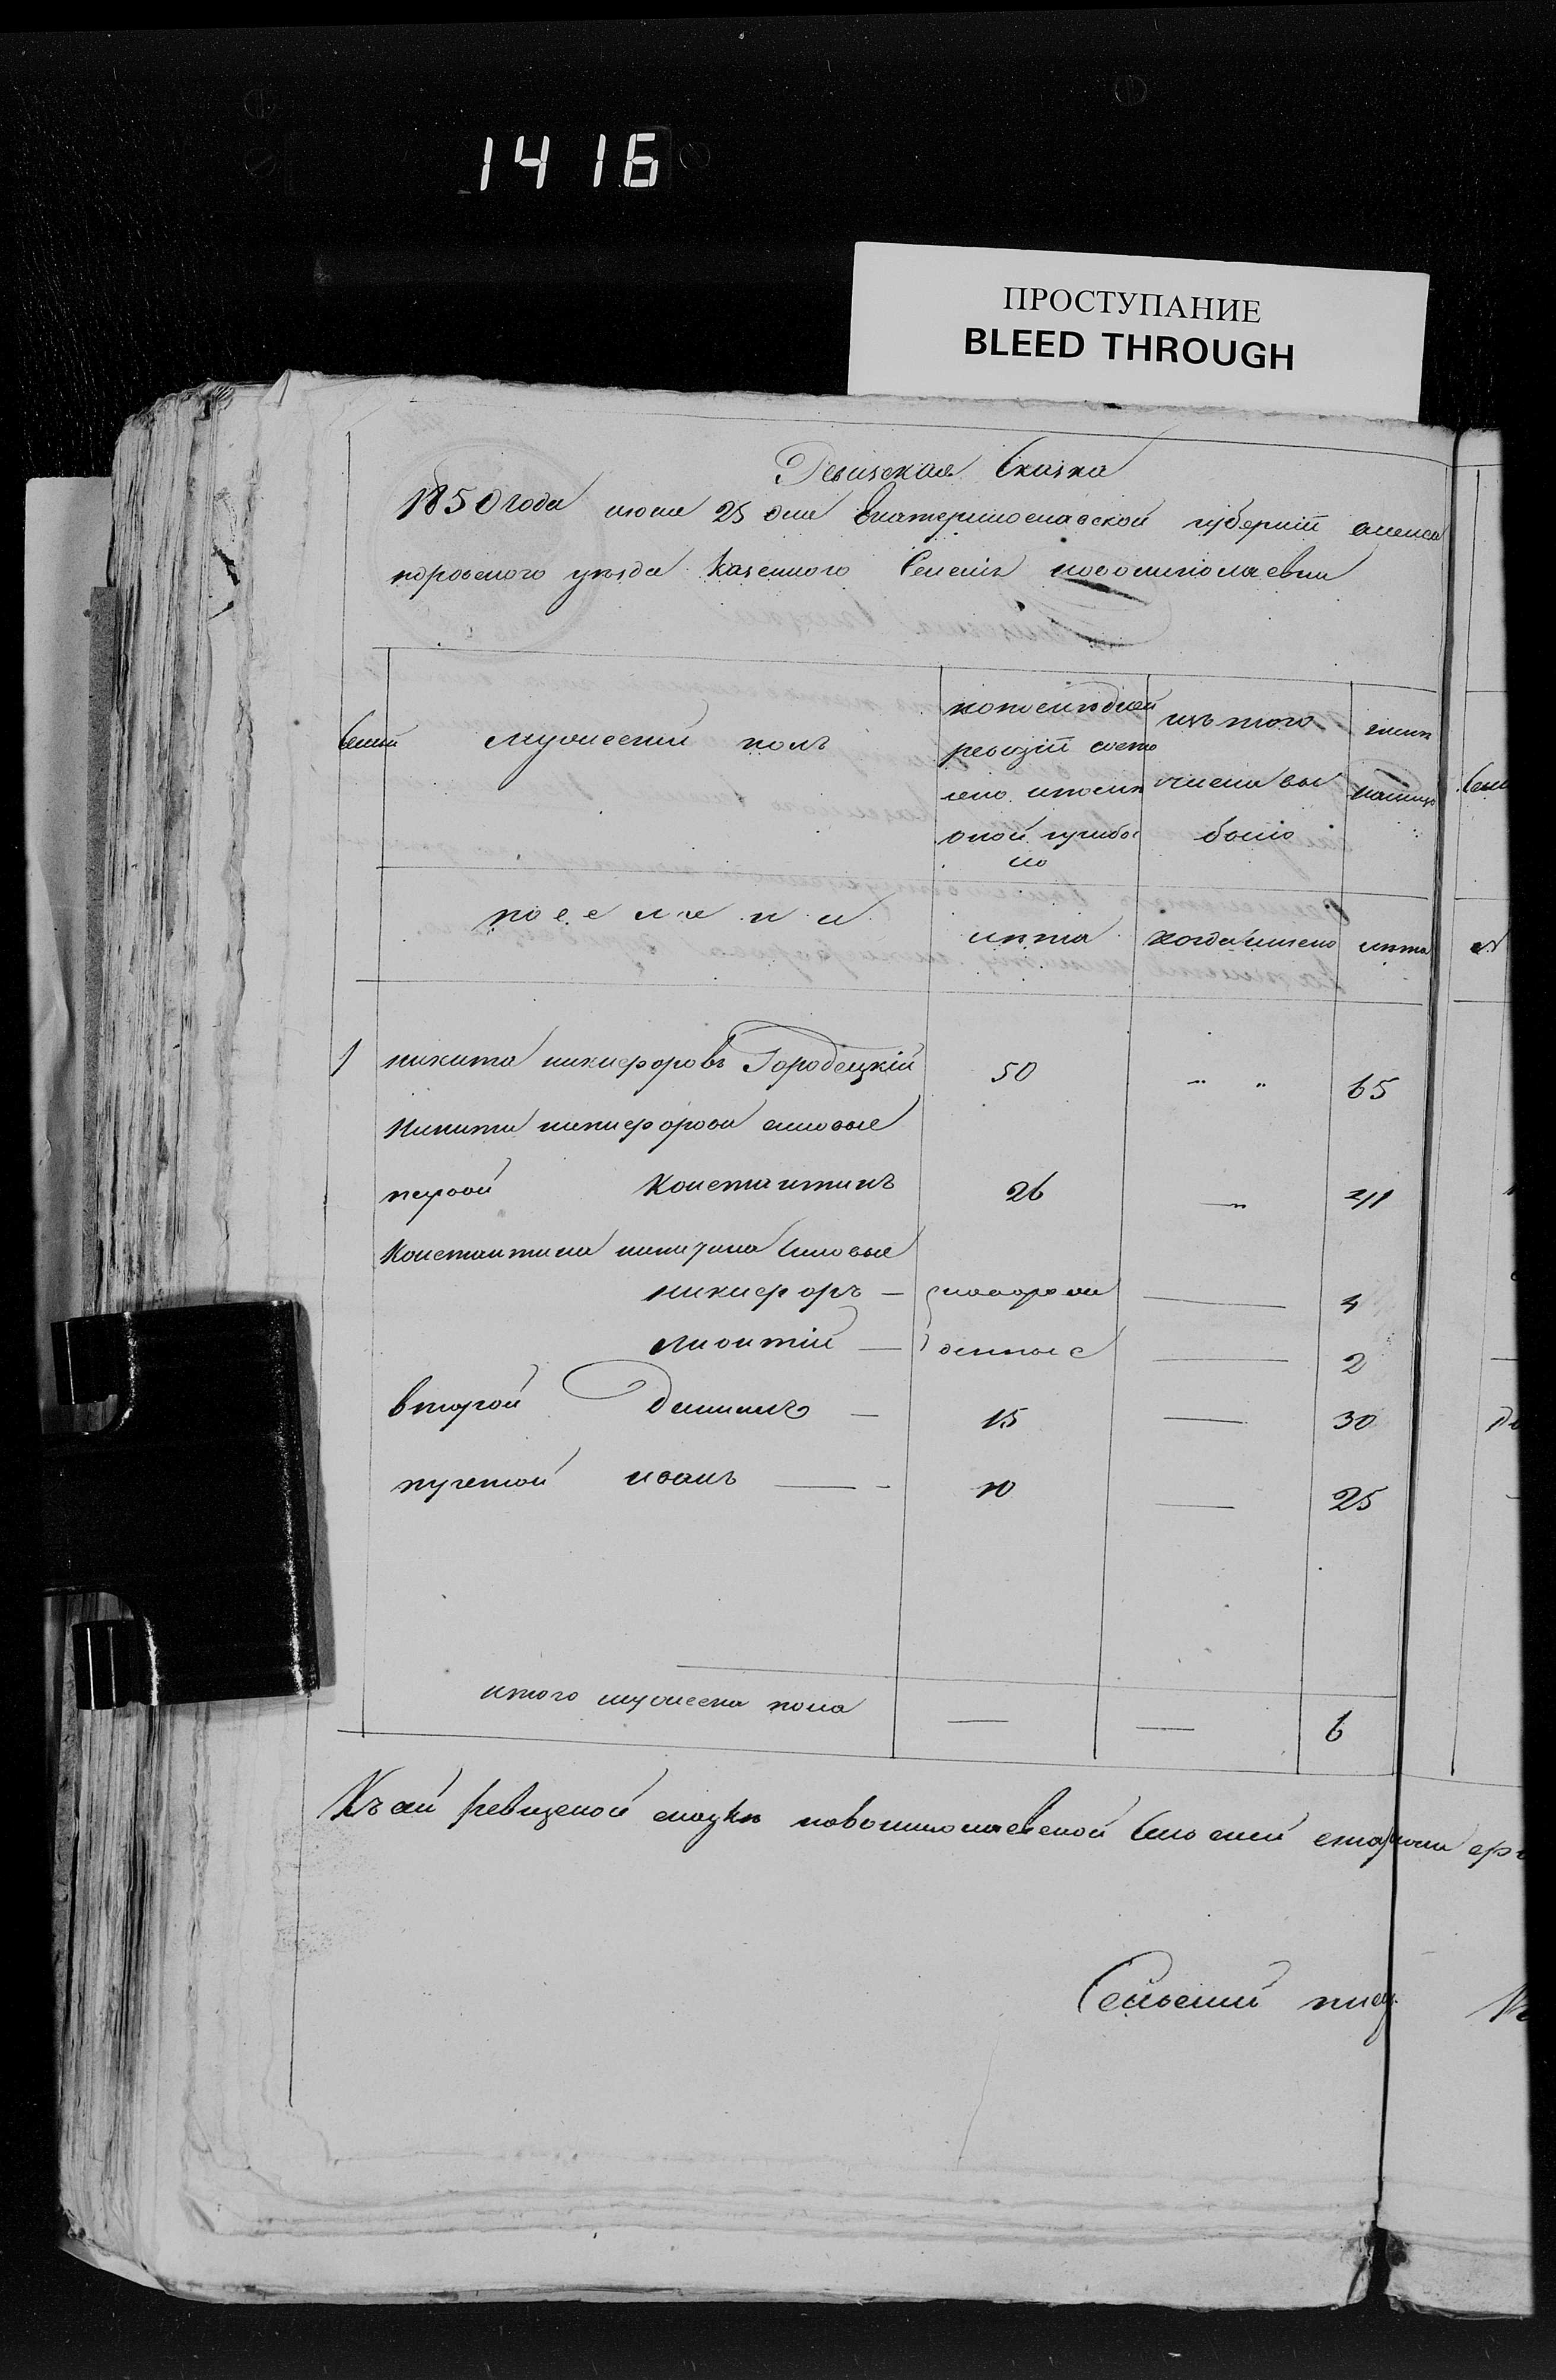 1416
ПРОСТУПАНИЕ
BLEED THROUGH
Ревизская Сказка
1850 года июня 25 дня Екатеринославской губернiи алекса
ндровского уезда казенного Селенiя новониколаевки
Семьи
мужеский полъ
попоследней
ревизiи состо
яло ипосля
оной прибы
ло
изъ того
числа вы
было
ныне
налицо
поселяни
лета
когда имено
лета
1 никита никифоровъ Городецкiй 50 " " 65
Никиты никифорова сыновье
первой Константинъ 26 — 41
Константина никитина Сыновье
никифоръ — новорож — 4
леонтiй — денные — 2
второй Демианъ — 15 — 30
третой иванъ — 10 — 25
итого мужеска пола — — 6
Къ сей ревизской сказке новониколаевской Сельский
Сельский писар